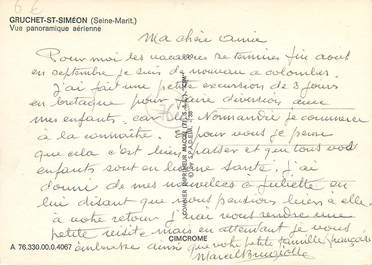 6 €
GRUCHET-ST-SIMÉON (Seine-Marit.)
Vue panoramique aérienne
Ma chère amie
Pour moi les vacances se termines fin aout
en septembre je suis de nouveau a colombes.
j'ai fait une petite excursion de 3 jours
en bretagne pour faire diversion avec
mes enfants, car la Normandie je commence
à la connaitre. Et pour vous je pense
que cela c'est bien passer et que tous vos
enfants sont en bonne santé, j'ai
donné de mes nouvelles a Juliette en
lui disant que nous pensions bien à elle
à votre retour j'irai vous rendre une
petite visite mais en attendant je vous
embrasse ainsi que votre petite famille française
Marcel
COMBIER IMPRIMEUR MACON
CIMCROME
A 76.330.00.0.4067